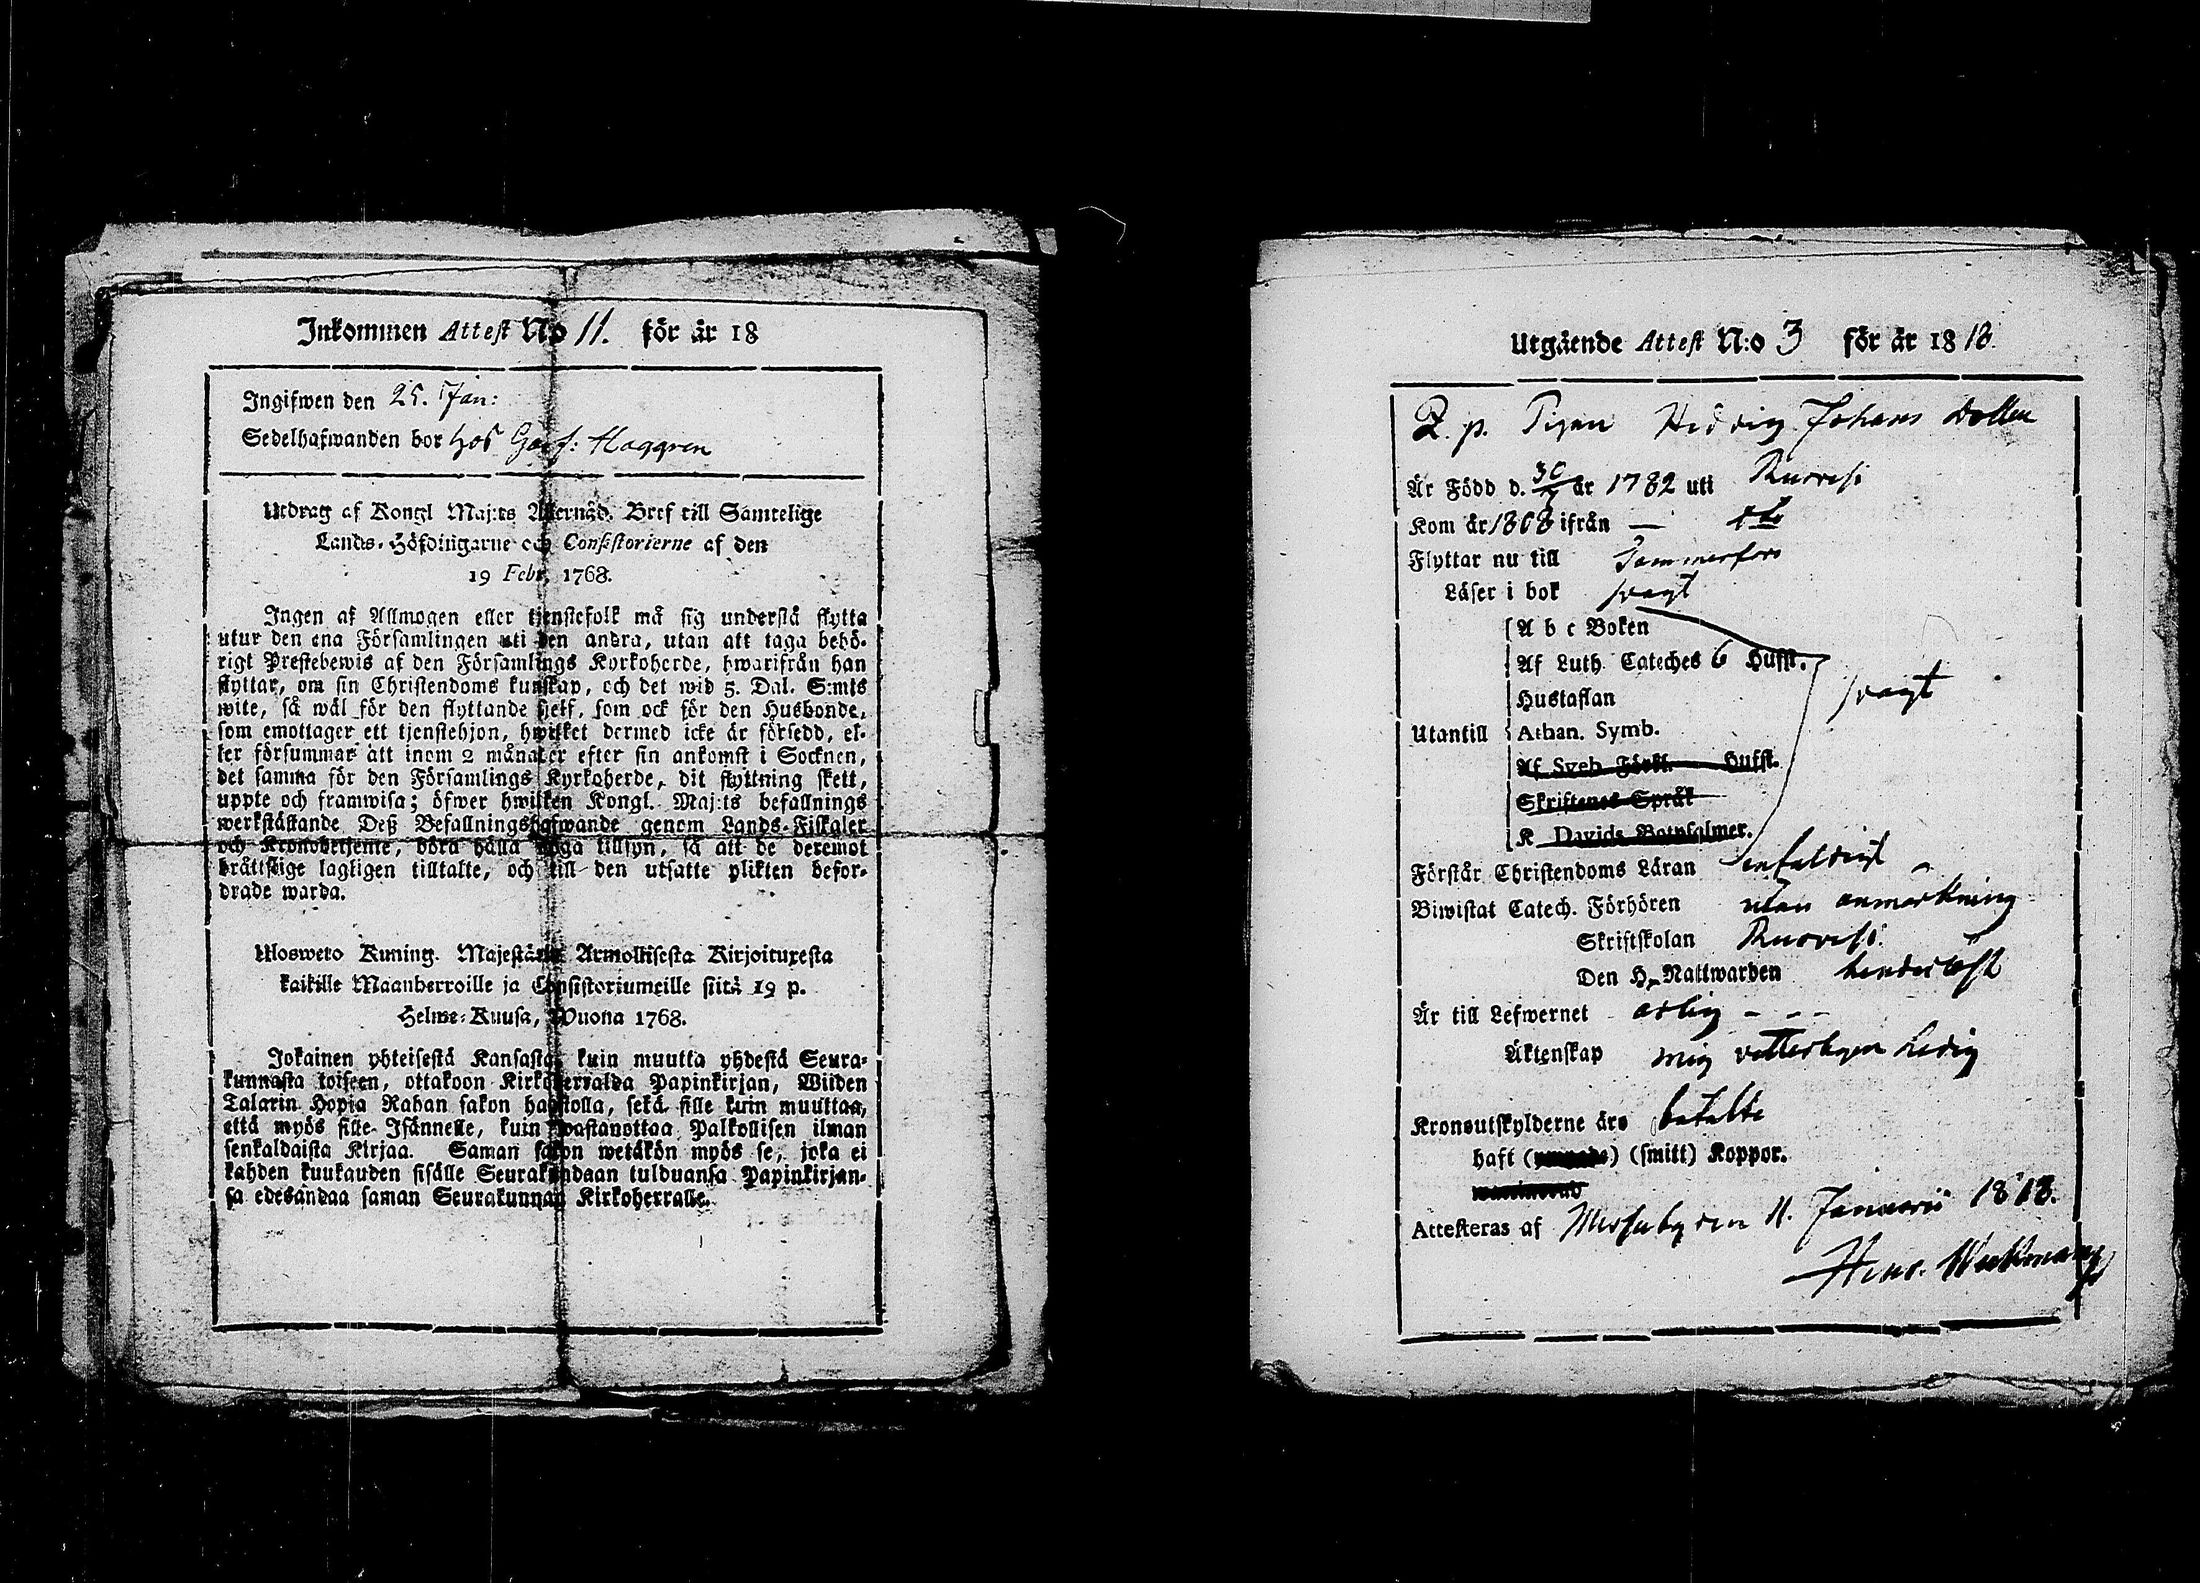 Inkommen Attest No 11. för år 18
Ingifwen den 25. Jan:
Sedelhafwanden bor hos Garf: Haggren
Utdrag af Kongl Maj:ts Allernåd. Bref till Samtelige
Lands-Höfdingarne och Consistorierne af den
19 Febr. 1768.
Ingen af Allmogen eller tjenstefolk må sig understå flytta
utur den ena Församlingen uti den andra, utan att taga behö-
rigt Prestebewis af den Församlings Kyrkoherde, hwarifrån han
flyttar, om sin Christendoms kunskap, och det wid 5. Dal. S:mts
wite, så wäl för den flyttande sjelf, som ock för den Husbonde,
som emottager ett tjenstehjon, hwilket dermed icke är försedd, el-
ler försummar att inom 2 månader efter sin ankomst i Socknen,
det samma för den Församlings Kyrkoherde, dit flyttning skett,
uppte och framwisa; öfwer hwilken Kongl. Maj:ts befallnings
werkställande Deß Befallningshafwande genom Lands-Fiskaler
och Kronobetjente, böra hålla noga tillsyn, så att de deremot
bråttslige lagligen tilltalte, och till den utsatte plikten befor-
drade warda.
Uloswero Kuning. Majestätin Armollisesta Kirjoituxesta
kaikille Maanherroille ja Consistoriumeille siitä 19 p.
Helme-Kuusa, Wuona 1768.
Jokainen yhteisestä Kansasta, kuin muutta yhdestä Seura-
kunnasta toiseen, ottakoon Kirkoherralda Papinkirjan, Wiiden
Talarin Hopia Rahan sakon haastolla, sekä sille kuin muuttaa,
että myös sille Isännelle, kuin wastanottaa Palkollisen ilman
senkaldaista Kirjaa. Saman sakon wetäkön myös se, joka ei
kahden kuukauden sisälle Seurakundaan tulduansa Papinkirjan-
sa edesandaa saman Seurakunnan Kirkoherralle.
Utgående Attest N:o 3 för år 1818.
Z. p. Pigan Hedvig Johans Dotter
Är Född d. 30/ år 1782 uti Ruovesi
Kom år 1808 ifrån — do
Flyttar nu till Tammerfors
Läser i bok svagt
A b c Boken
Af Luth. Cateches 6 Hufst.
Hustaflan svagt
Utantill Athan. Symb.
Af Sveb. Förkl. Hufst.
Skriftenes Språk
K Davids Botpsalmer.
Förstår Christendoms Läran enfaldigt
Biwistat Catech. Förhören utan anmärkning
Skriftskolan Ruovesi.
Den H. Nattwarden hinderlöst
Är till Lefwernet ärlig - - -
Äktenskap mig vetterligen ledig
Kronoutskylderne äro betalte
haft () (smitt) Koppor.
Attesteras af Messuby den 11. Januarii 1818.
Henr.